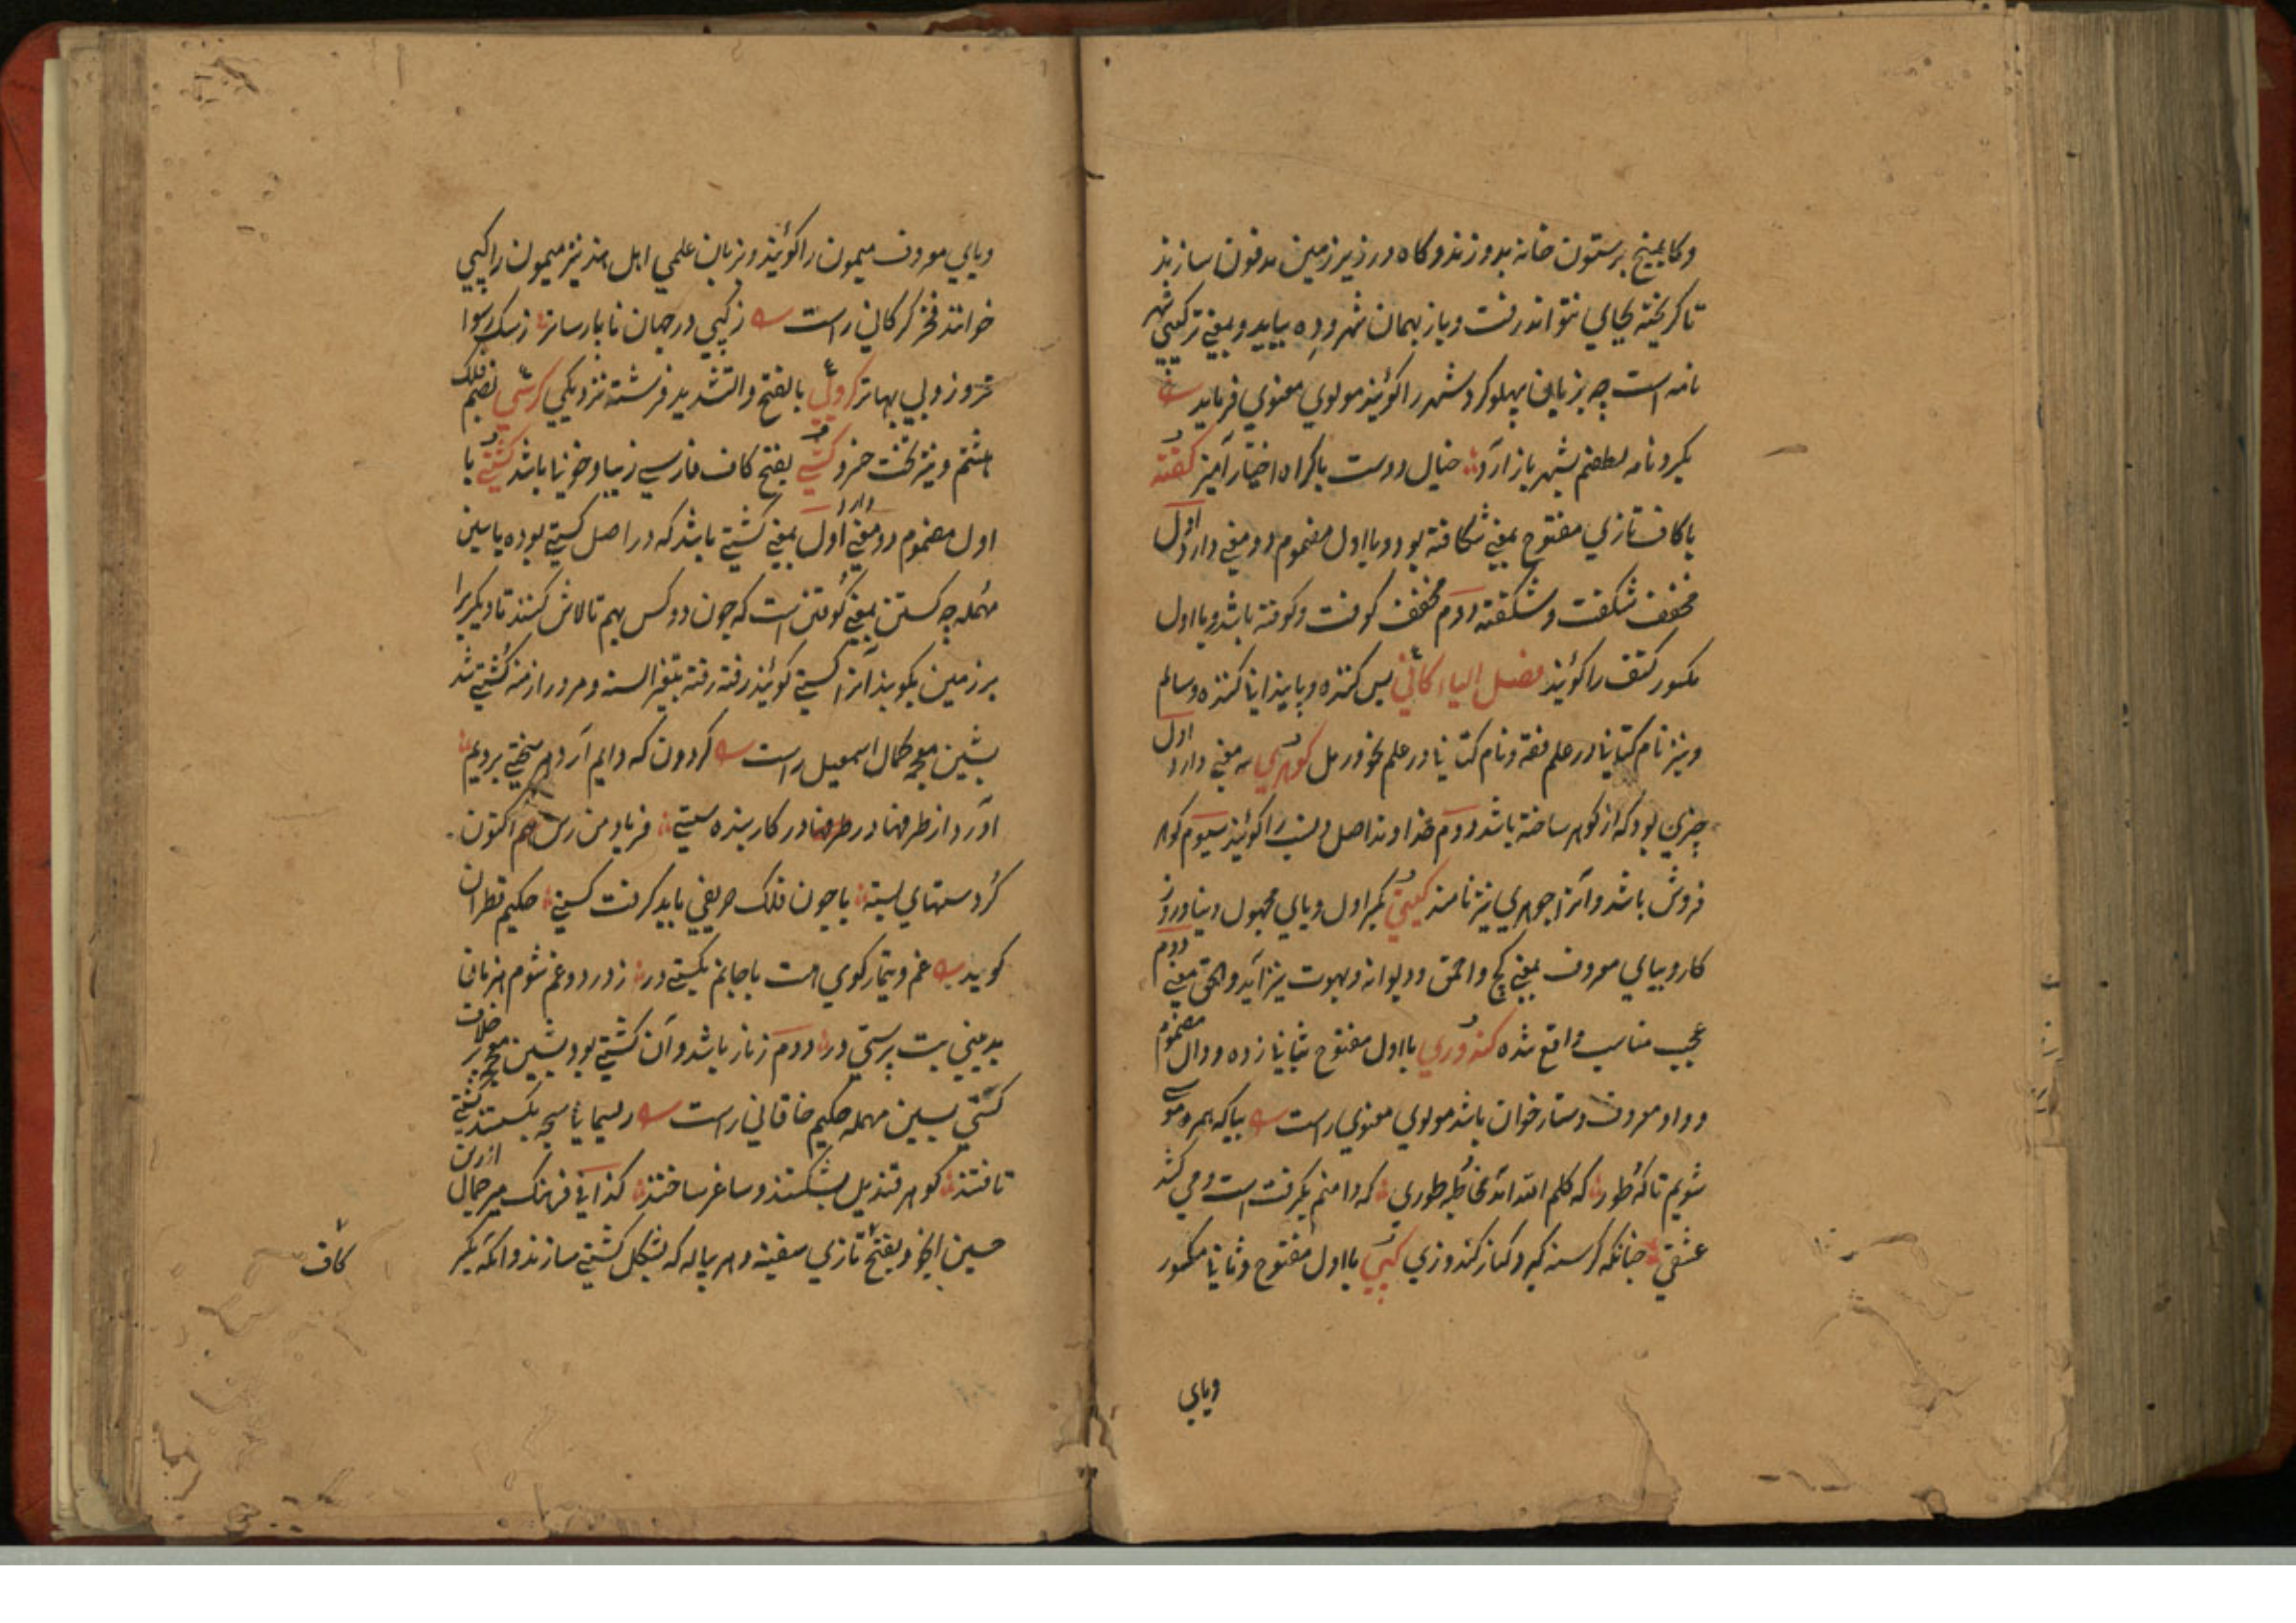 وکا بمیخ برستون خانه بدوزند و کاه در زیر زمین مدفون سازند
تا کریخته بجای نتواند رفت و باز بهمان شهر و دِه بیاید و بمعنی ترکیبی شهر
نامه است چه بزبان پهلو کرد شهر را کویند مولوی معنوی فرماید
بکرد نامه لطفم بشهر باز آرد خیال دوست باکراه اختیار آمیز کفته
با کاف تازی مفتوح بمعنی شکافته بود و با اول مضموم دو معنی دارد اول
مخفف شکفت و شکفته دوم مخفف کوفت و کوفته باشد و با اول
مکسور کتف را کویند فصل الیاء کافی بس کننده و پایندانی کننده و سالم
و نیز نام کتابی در علم فقه و نام کتابی در علم نحو و رمل کوهری سه معنی دارد اول
چیزی بود که از کوهر ساخته باشد دوم خداوند اصل و نسب را کویند سیوم کوهر
فروش باشد و آنرا جوهری نیز نامند کیتی بکسر اول و یای مجهول دنیا و روز
کار و بیای معروف بمعنی کیج و احمق و دیوانه و مبهوت نیز آید و الحق معنی دوم
عجب مناسب واقع شده کندوری با اول مفتوح بثانی زده و دال مضموم
و واو معروف دستار خوان باشد مولوی معنوی راست بیا که همره موسی
شویم تا که طور که کلم الله آمد مخاطبه طوری که دامنم بکرفت است و می کشد
عشقی چنانکه کرسنه کیرد کنار کندوری کپی با اول مفتوح و ثانی مکسور
ویای
ویای معروف میمون را کویند و بزبان علمی اهل هند نیز میمون را کپی
خوانند فخر کرکانی راست ز کپی در جهان نا پارساتر ز سک رسوا
تر و ز وی بی بهاتر کروبی بالفتح و التشدید فرشته نزدیکی کرسی بضم فلک
هشتم و نیز تخت خرد کشی بفتح کاف فارسی زیبا و خوبی باشد کشتی با
اول مضموم دو معنی دارد اول بمعنی کشتی باشد که در اصل کستی بوده با سین
مهمله چه کستن بمعنی کوفتن است که چون دو کس بهم تلاش کنند تا دیکریرا
بر زمین بکوبند آنرا کستی کویند رفته رفته بتغیر السنه و مرور ازمنه کشتی شد
بشین معجمه کمال اسمعیل راست کردون که دایم آرد هر سختی برویم
آورد از طرفها در طرفها در کار بنده سستی فریاد من رس هم اکنون
کز دستهای بسته با چون فلک حریفی باید کرفت کستی حکیم قطران
کوید غم و تیمار کوی هست با جانم بکستی در ز درد و غم شوم هر زمان
بدبینی بت پرستی در دوم زنار باشد و آن کشتی بود بشین معجمه خلاف بر
کستی بسین مهمله حکیم خاقانی راست ریسمان سبحه بکسستند کستی
تافتند کوهر قندیل بشکستند و ساغر ساختند کذا فی فرهنک میر جمال ازدن
حسین اینجو و بفتح تازی سفینه و هر پیاله که بشکل کشتی سازند و آنکه بکسر
کاف